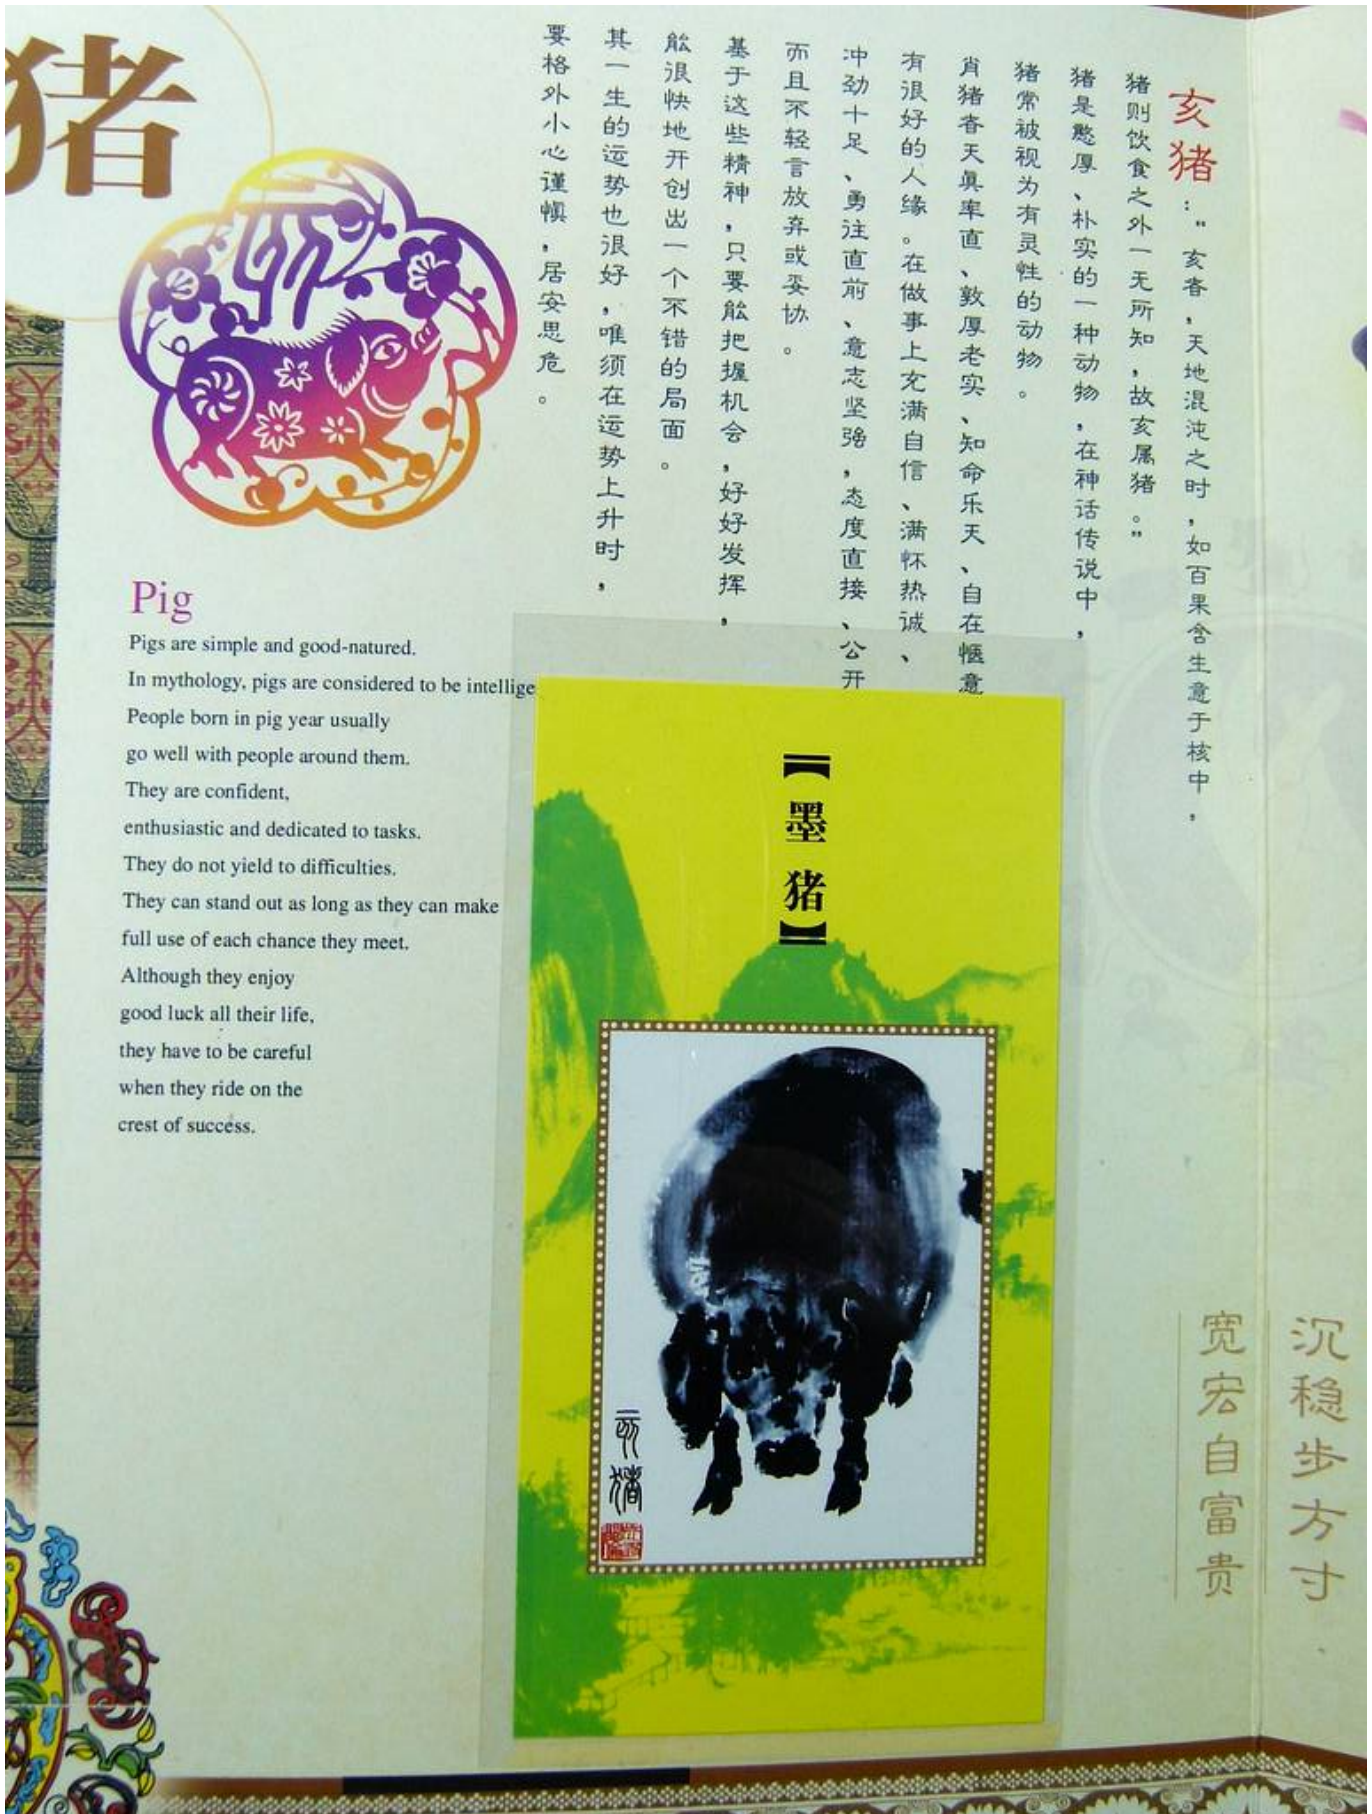 猪
亥猪：“亥者，天地混沌之时，如百果含生意于核中，
猪则饮食之外一无所知，故亥属猪。”
猪是憨厚、朴实的一种动物，在神话传说中，
猪常被视为有灵性的动物。
肖猪者天真率直、敦厚老实、知命乐天、自在惬意
有很好的人缘。在做事上充满自信、满怀热诚、
冲劲十足、勇往直前、意志坚强，态度直接、公开
而且不轻言放弃或妥协。
基于这些精神，只要能把握机会，好好发挥，
能很快地开创出一个不错的局面。
其一生的运势也很好，唯须在运势上升时，
要格外小心谨慎，居安思危。
Pig
Pigs are simple and good-natured.
In mythology, pigs are considered to be intellige
People born in pig year usually
go well with people around them.
They are confident,
enthusiastic and dedicated to tasks.
They do not yield to difficulties.
They can stand out as long as they can make
full use of each chance they meet.
Although they enjoy
good luck all their life,
they have to be careful
when they ride on the
crest of success.
【墨猪】
沉稳步方寸
宽宏自富贵